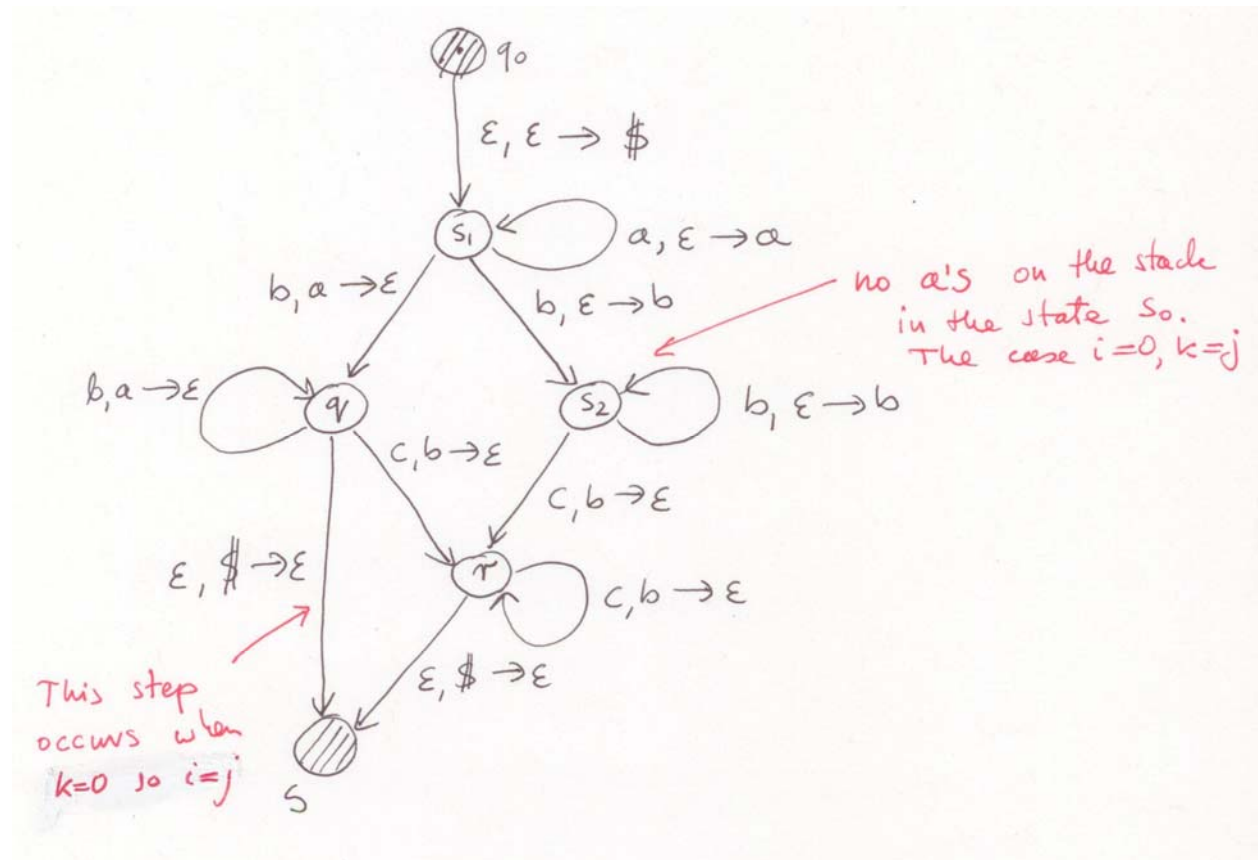 q₀
ε, ε → $
S₁
a, ε → a
b, a → ε
b, ε → b
no a's on the stack
in the state S₀.
The case i=0, k=j
b, a → ε
q
S₂
b, ε → b
c, b → ε
c, b → ε
ε, $ → ε
r
c, b → ε
ε, $ → ε
This step
occurs when
k=0 so i=j
S